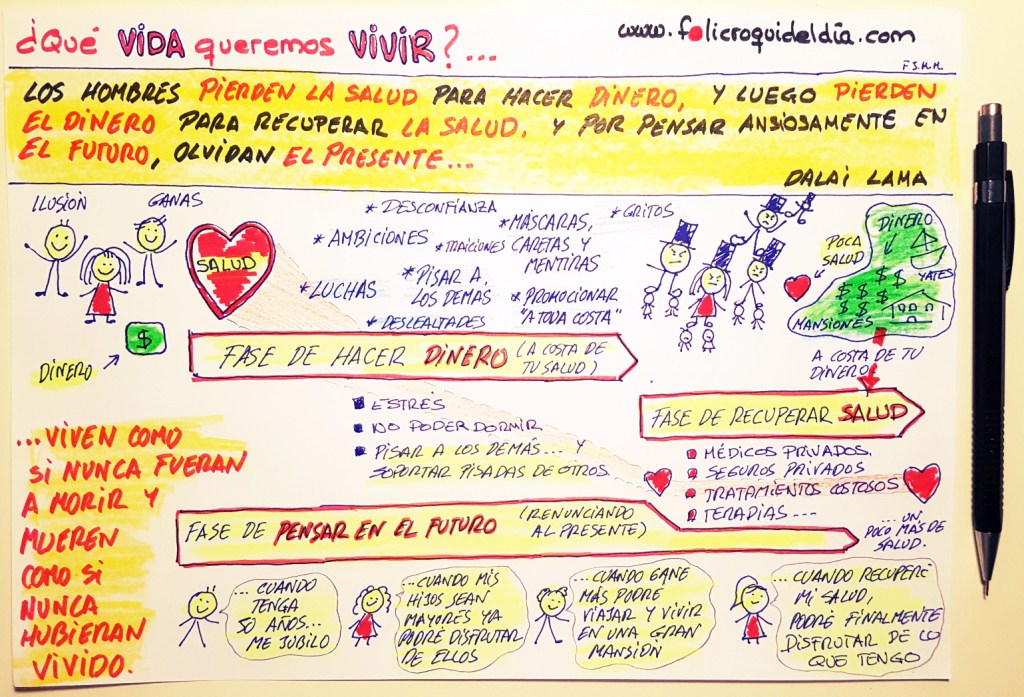 ¿Qué VIDA queremos VIVIR?...
www.folicroquideldia.com
F.S.H.M.
LOS HOMBRES PIERDEN LA SALUD PARA HACER DINERO, Y LUEGO PIERDEN
EL DINERO PARA RECUPERAR LA SALUD, Y POR PENSAR ANSIOSAMENTE EN
EL FUTURO, OLVIDAN EL PRESENTE...
DALAI LAMA
ILUSIÓN
GANAS
SALUD
$
DINERO
* DESCONFIANZA
* AMBICIONES
* TRAICIONES
* MÁSCARAS,
CARETAS Y
MENTIRAS
* GRITOS
* LUCHAS
* PISAR A
LOS DEMAS
* PROMOCIONAR
"A TODA COSTA"
* DESLEALTADES
POCA
SALUD
DINERO
YATES
$ $ $ $ $ $ $ $
MANSIONES
A COSTA DE TU
DINERO
FASE DE HACER DINERO (A COSTA DE
TU SALUD)
ESTRÉS
NO PODER DORMIR
PISAR A LOS DEMÁS... Y
SOPORTAR PISADAS DE OTROS
FASE DE RECUPERAR SALUD
MÉDICOS PRIVADOS
SEGUROS PRIVADOS
TRATAMIENTOS COSTOSOS
TERAPIAS...
...UN
POCO MÁS DE
SALUD.
...VIVEN COMO
SI NUNCA FUERAN
A MORIR Y
MUEREN
COMO SI
NUNCA
HUBIERAN
VIVIDO.
FASE DE PENSAR EN EL FUTURO (RENUNCIANDO
AL PRESENTE)
...CUANDO
TENGA
50 AÑOS...
ME JUBILO
...CUANDO MIS
HIJOS SEAN
MAYORES YA
PODRÉ DISFRUTAR
DE ELLOS
...CUANDO GANE
MÁS PODRÉ
VIAJAR Y VIVIR
EN UNA GRAN
MANSIÓN
...CUANDO RECUPERE
MI SALUD,
PODRÉ FINALMENTE
DISFRUTAR DE LO
QUE TENGO